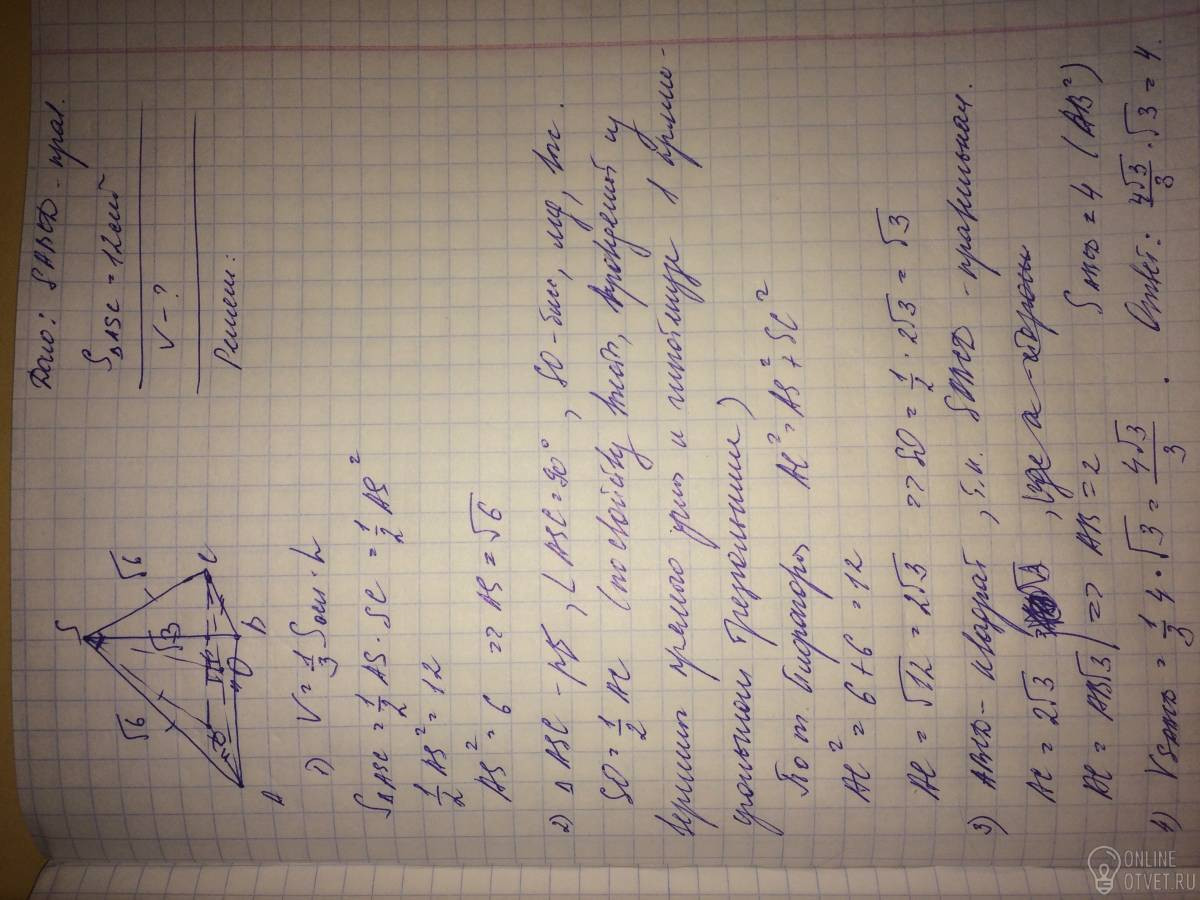 Дано: SABCD - прав.
S△ASC = 12см
V - ?
Решен:
S
√6
√6
√3
A
B
C
D
O
1) V = 1/3 Sосн · h
S△ASC = 1/2 AS · SC = 1/2 AS²
1/2 AS² = 12
AS² = 6 => AS = √6
2) △ ASC - р/б, ∠ASC = 90°, SO - бис, мед, выс.
SO = 1/2 AC (по свойству высот, проведенной из
вершины прямого угла к гипотенузе в прямо-
угольном треугольнике)
По т. Пифагора AC² = AS² + SC²
AC² = 6 + 6 = 12
AC = √12 = 2√3 => SO = 1/2 · 2√3 = √3
3) ABCD - квадрат, т.к. SABCD - правильная.
AC = 2√3, где a - стороны
AC = AB√3 => AB = 2 SABCD = 4 (AB²)
4) VSABCD = 1/3 4 · √3 = 4√3/3. Ответ: 4√3/3 · √3 = 4.
ONLINE
OTVET.RU